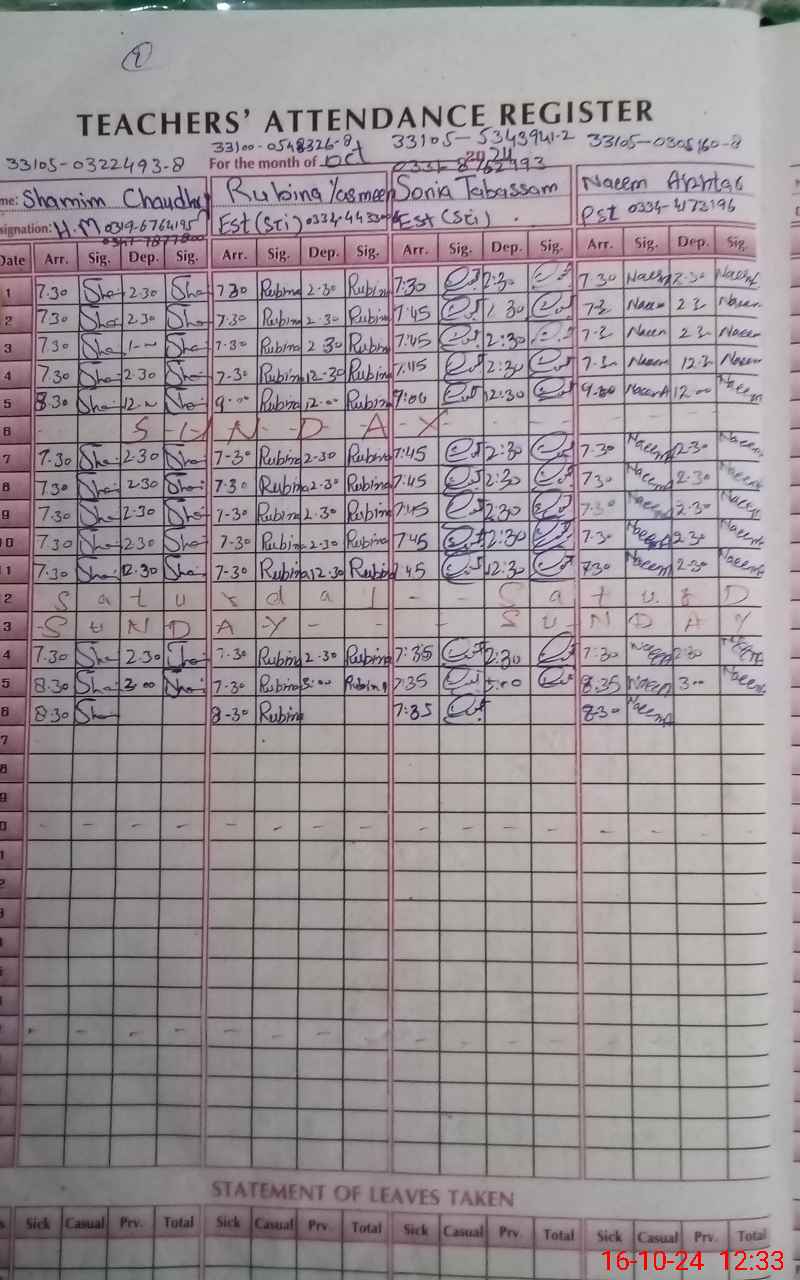 TEACHERS' ATTENDANCE REGISTER
33105-0322493-8 33100-0548326-8 33105-5343941-2 33105-0305160-8
For the month of Oct 2024
me: Shamim Chaudhry Rubina Yasmeen Sonia Tabassam Naeem Akhtar
signation: H.M 0319-6764195 Est (Sti) Est (Sti) Pst 0334-4173196
Date Arr. Sig. Dep. Sig. Arr. Sig. Dep. Sig. Arr. Sig. Dep. Sig. Arr. Sig. Dep. Sig.
1 7.30 Sha 2.30 Sha 7.30 Rubina 2.30 Rubina 7:30 2:30 7.30 Naeem 2.30 Naeem
2 7.30 Sha 2.30 Sha 7.30 Rubina 2.30 Rubina 7:45 1.30 Naeem Naeem
3 7.30 Sha Sha 7-30 Rubina 2.30 Rubina 7:45 2:30 Naeem Naeem
4 7.30 Sha 2.30 Sha 7-30 Rubina 12-30 Rubina 7:45 2:30 Naeem Naeem
5 8.30 Sha Sha 9-00 Rubina 12-00 Rubina 12:30 Naeem 12-00 Naeem
6 S U N D A Y
7 7.30 Sha 2.30 Sha 7-30 Rubina 2-30 Rubina 7:45 2:30 7.30 Naeem 2.30 Naeem
8 7.30 Sha 2.30 Sha 7-30 Rubina 2.30 Rubina 7:45 2:30 7.30 Naeem 2.30 Naeem
9 7.30 Sha 2.30 Sha 7-30 Rubina 2.30 Rubina 7:45 2:30 7.30 Naeem 2.30 Naeem
10 7.30 Sha 2.30 Sha 7-30 Rubina 2.30 Rubina 7:45 2:30 7.30 Naeem 2.30 Naeem
11 7.30 Sha 12.30 Sha 7-30 Rubina 12.30 Rubina 7:45 12:30 7.30 Naeem 2.30 Naeem
2 S a t u r d a y - - S a t u r D
3 S U N D A Y - - - S U N D A Y
4 7.30 Sha 2.30 Sha 7.30 Rubina 2-30 Rubina 7:35 2:30 7:30 Naeem 2.30 Naeem
5 8.30 Sha 3.00 Sha 7-30 Rubina 3:00 Rubina 7:35 8.35 Naeem 3.00 Naeem
6 8.30 Sha 8-30 Rubina 7:35 8.30 Naeem
7
8
9
0
1
2
3
4
5
6
7
STATEMENT OF LEAVES TAKEN
s Sick Casual Prv. Total Sick Casual Prv. Total Sick Casual Prv. Total Sick Casual Prv. Total
16-10-24 12:33